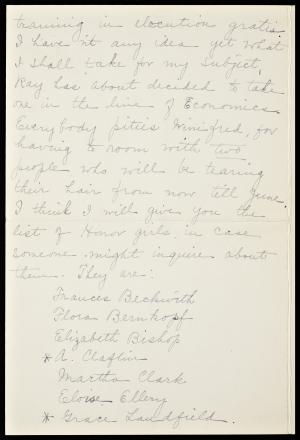 training in elocution gratis.
I have n't any idea yet what
I shall take for my subject,
Ray has about decided to take
one in the line of Economics.
Everybody pities Winifred, for
having to room with two
people who will be tearing
their hair from now till June.
I think I will give you the
list of Honor girls, in case
someone might inquire about
them. They are:
Frances Beckwith
Flora Bernkopf
Elizabeth Bishop
* A. Claflin
Martha Clark
Eloise Ellery
* Grace Landfield.